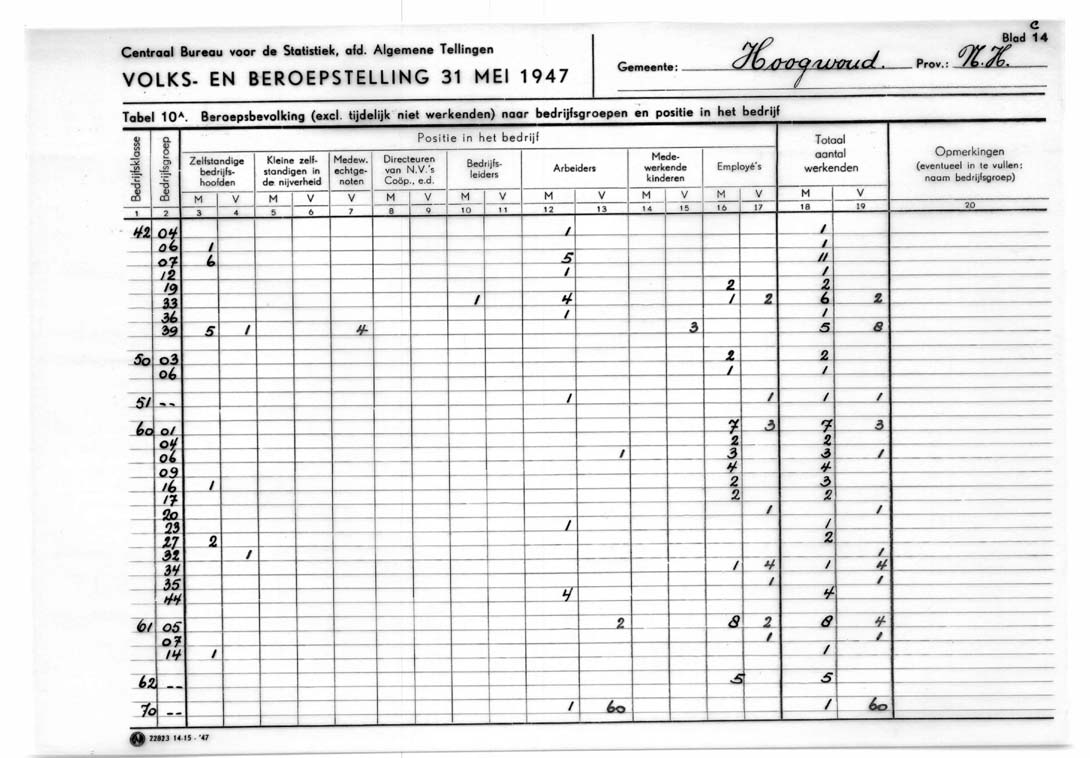 C
Blad 14
Centraal Bureau voor de Statistiek, afd. Algemene Tellingen
VOLKS- EN BEROEPSTELLING 31 MEI 1947
Gemeente: Hoogwoud. Prov.: N.H.
Tabel 10A. Beroepsbevolking (excl. tijdelijk niet werkenden) naar bedrijfsgroepen en positie in het bedrijf
Bedrijfsklasse Bedrijfsgroep Positie in het bedrijf Totaal aantal werkenden Opmerkingen (eventueel in te vullen: naam bedrijfsgroep)
Zelfstandige bedrijfs-hoofden Kleine zelf-standigen in de nijverheid Medew. echtge-noten Directeuren van N.V.'s Coöp., e.d. Bedrijfs-leiders Arbeiders Mede-werkende kinderen Employé's
M V M V V M V M V M V M V M V M V
1 2 3 4 5 6 7 8 9 10 11 12 13 14 15 16 17 18 19 20
42 04 1 1
06 1 1
07 6 5 11
12 1 1
19 2 2
33 1 4 1 2 6 2
36 1 1
39 5 1 4 3 5 8
50 03 2 2
06 1 1
51 -- 1 1 1 1
60 01 7 3 7 3
04 2 2
06 1 3 3 1
09 4 4
16 1 2 3
17 2 2
20 1 1
23 1 1
27 2 2
32 1 1
34 1 4 1 4
35 1 1
44 4 4
61 05 2 8 2 8 4
07 1 1
14 1 1
62 -- 5 5
70 -- 1 60 1 60
22823 14-15 - '47